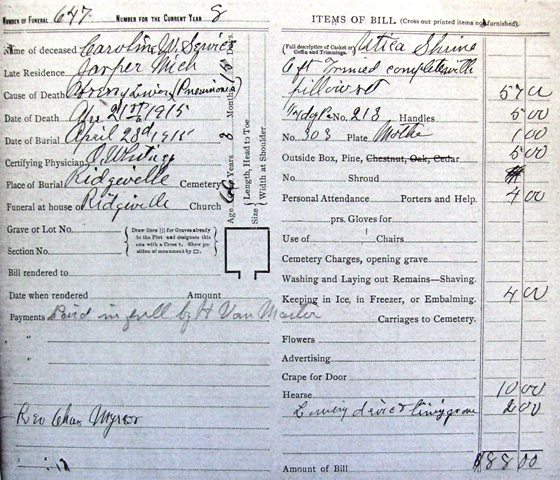 NUMBER OF FUNERAL 647. NUMBER FOR THE CURRENT YEAR 8
Name of deceased Caroline W. Service
Late Residence Jasper Mich
Cause of Death (Pneumonia)
Date of Death Apr 21st 1915
Date of Burial April 23d 1915
Certifying Physician O. Whitney
Place of Burial Ridgeville Cemetery
Funeral at house or Ridgeville Church
Age 66 Years 8 Months 15 Days.
Size { Length, Head to Toe
Width at Shoulder
Grave or Lot No.
Section No.
{ Draw lines ||| for Graves already in the Plot and designate this one with a Cross †. Show position of monument by □. }
Bill rendered to
Date when rendered Amount
Payments Paid in full by H Van
" "
" "
Rev Chas Myers
ITEMS OF BILL (Cross out printed items not furnished).
(Full description of Casket or Coffin and Trimmings. Utica Shrine
6 ft Trimed complete with
pillow set 57 00
No. 218 Handles 5 00
No. 303 Plate Mother 1 00
Outside Box, Pine, Chestnut, Oak, Cedar 5 00
No. Shroud
Personal Attendance Porters and Help. 4 00
prs. Gloves for
Use of Chairs
Cemetery Charges, opening grave
Washing and Laying out Remains—Shaving.
Keeping in Ice, in Freezer, or Embalming. 4 00
Carriages to Cemetery.
Flowers
Advertising
Crape for Door
Hearse 10 00
Lowering device lining grave 2 00
Amount of Bill $88 00